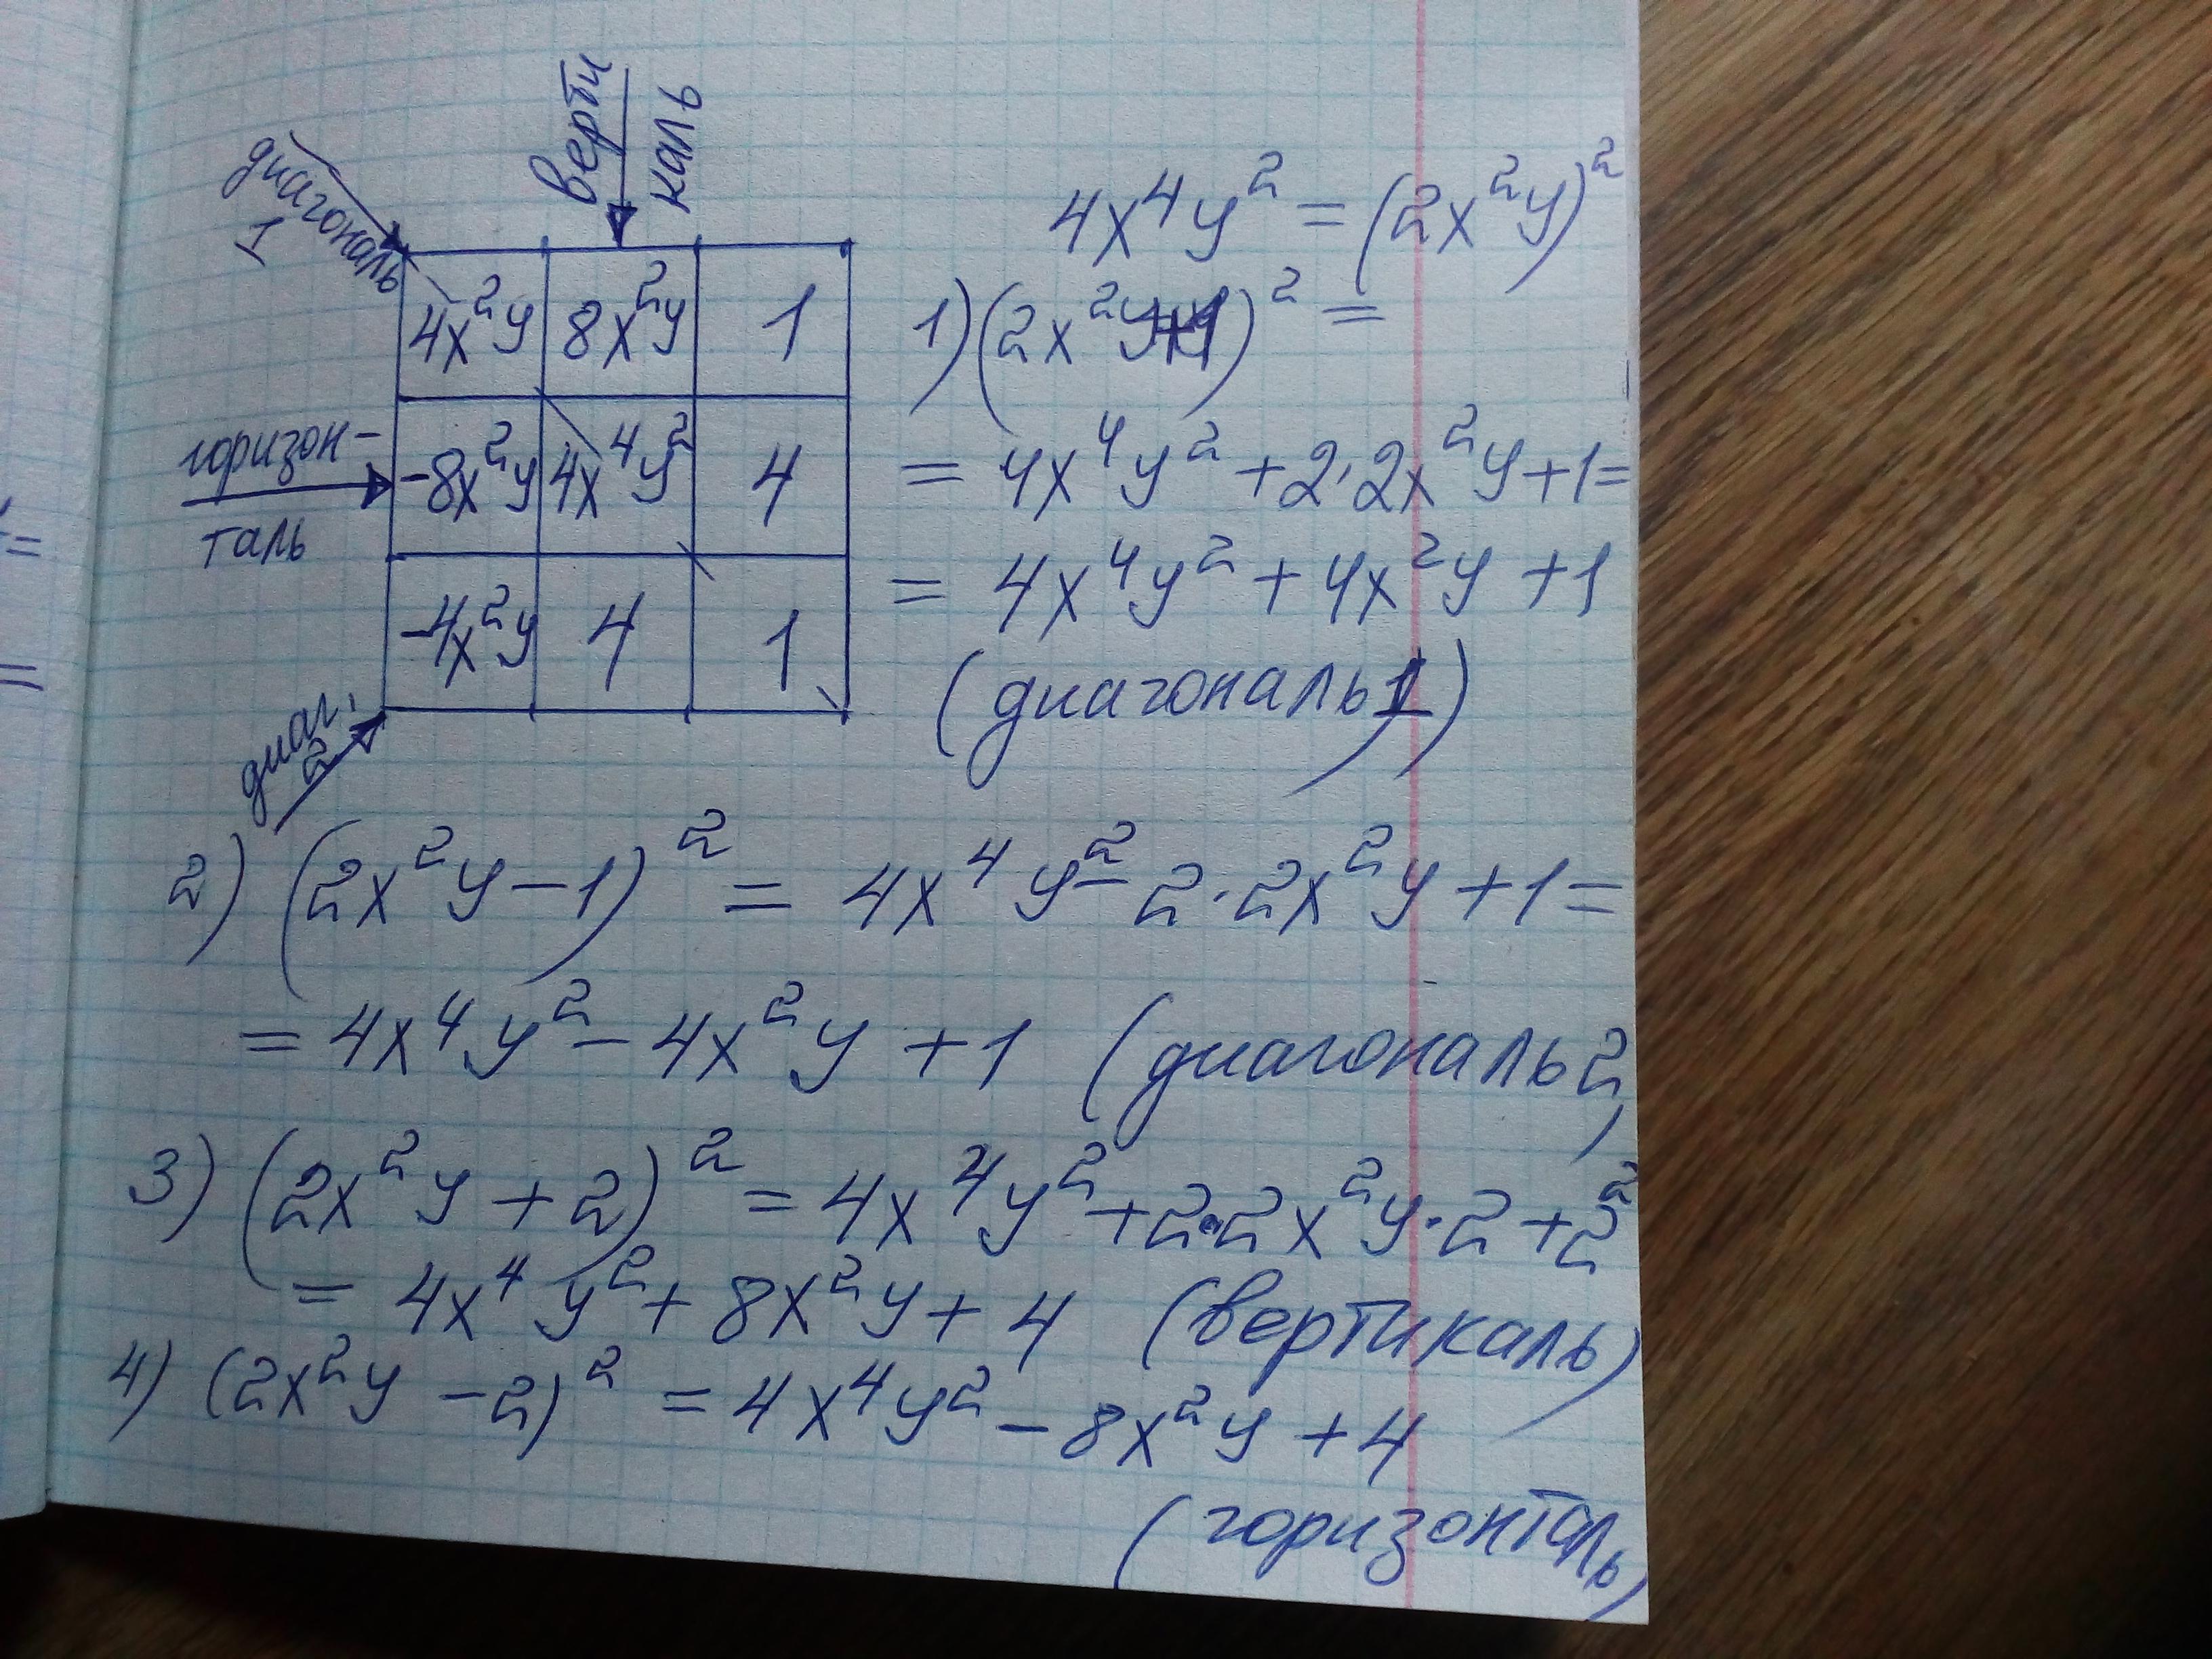 верти
каль
диагональ
1
4x²y 8x²y 1
горизон-
таль
-8x²y 4x⁴y² 4
-4x²y 4 1
диаг.
2
4x⁴y² = (2x²y)²
1) (2x²y+1)² =
= 4x⁴y² + 2·2x²y + 1 =
= 4x⁴y² + 4x²y + 1
(диагональ 1)
2) (2x²y - 1)² = 4x⁴y² - 2·2x²y + 1 =
= 4x⁴y² - 4x²y + 1 (диагональ 2)
3) (2x²y + 2)² = 4x⁴y² + 2·2x²y·2 + 2²
= 4x⁴y² + 8x²y + 4 (вертикаль)
4) (2x²y - 2)² = 4x⁴y² - 8x²y + 4
(горизонталь)
=
=